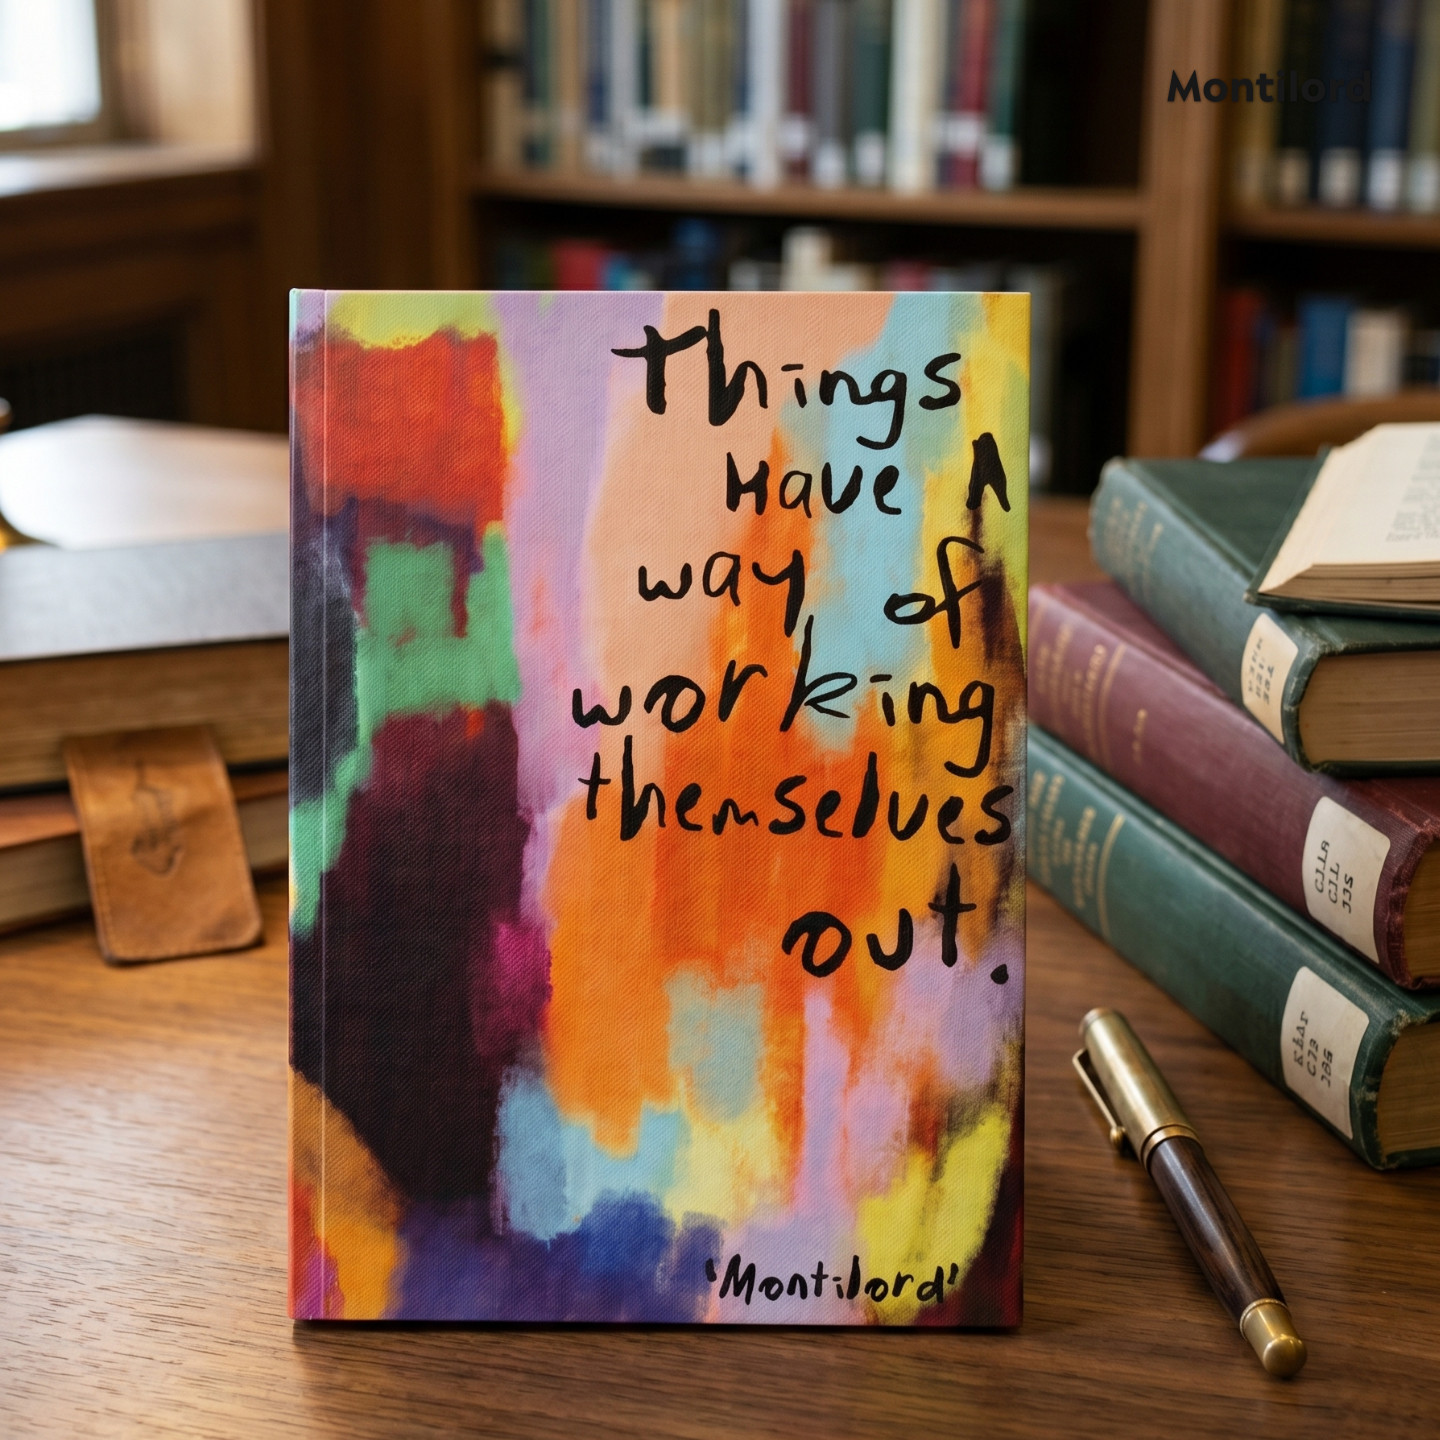 Montilord
Things
Have A
way of
working
themselves
out.
'Montilord'